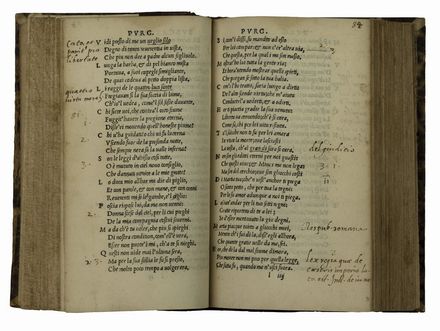 PVRG.
V idi presso di me un veglio solo
Degno di tanta reverenza in vista,
Che piu non dee a padre alcun figliuolo.
L unga la barba, et di pel bianco mista
Portava, a suoi capegli simigliante,
De quai cadeva al petto doppia lista.
L i raggi de le quattro luci sante
Fregiavan si la sua faccia di lume,
Ch'i'l vedea, come'l sol fosse davante.
C hi siete voi, che contra'l cieco fiume
Fuggit'havete la pregione eterna,
Diss'ei movendo quell'honeste piume?
C hi v'ha guidati? o chi vi fu lucerna
Uscendo fuor de la profonda notte,
Che sempre nera fa la valle inferna?
S on le leggi d'abisso cosi rotte?
O è mutato in ciel novo consiglio,
Che dannati venite a le mie grotte?
L o duca mio allhor mi die di piglio,
Et con parole, et con mano, et con cenni
Reverenti mi fe le gambe e'l ciglio.
P oscia rispose lui, da me non venni:
Donna scese dal ciel; per li cui preghi
De la mia compagnia costui sovvenni.
M a da ch'è tu voler, che piu si spieghi
Di nostra condition, com'ell'è vera;
Esser non puote'l mi, ch'a te si nieghi.
Q uesti non vide mai l'ultima sera;
Ma per la sua follia le fu si presso,
Che molto poco tempo a volger era.
PVRG.
S i com'i dissi, fui mandato ad esso
Per lui campar; et non v'er'altra via,
Che questa, per la qual i mi son messo.
M ostrat'ho lui tutta la gente ria;
Et hora'ntendo mostrar quelli spirti,
Che purgan se sotto la tua balia.
C om'i l'ho tratto, saria lungo a dirti:
De l'alto scende virtu, che m'aiuta
Conducerl'a vederti, et a udirti.
H or ti piaccia gradir la sua venuta:
Liberta va cercando, ch'è si cara,
Come sa, chi per lei vita rifiuta.
T u'l sai; che non ti fu per lei amara
In Utica la morte; ove lasciasti
La vesta, ch'al gran di sara si cara.
N on son gli editti eterni per noi guasti:
Che questi vive; et Minos me non lega:
Ma son del cerchio, ove son gli occhi casti
D i Martia tua; che'n vist'anchor ti prega,
O santo petto, che per tua la tegni:
Per lo su amor adunque a noi ti piega.
L asciane andar per li tuo sette regni:
Gratie riportero di te a lei;
Se d'esser mentovato la giu degni.
M artia piacque tanto a gliocchi miei,
Mentre ch'i fu di la, diss'egli alhora,
Che quante gratie volle da me, fei.
H or, che di la dal mal fiume dimora,
Piu mover non mi puo per quella legge,
Che fatta fu, quando me n'usci fuora.
del giudicio